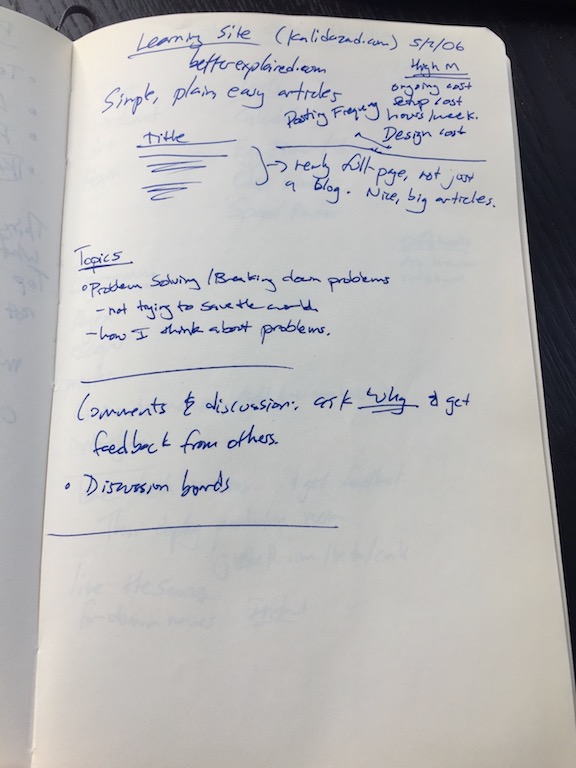 Learning Site (kalidazad.com) 5/2/06
betterexplained.com
Simple, plain easy articles
High M
ongoing cost
setup cost
hours/week.
Design cost
Posting Frequency
Title
→ really full-page, not just
a blog. Nice, big articles.
Topics
• Problem Solving / Breaking down problems
- not trying to save the world
- how I think about problems.
Comments & discussion: ask why & get
feedback from others.
• Discussion boards